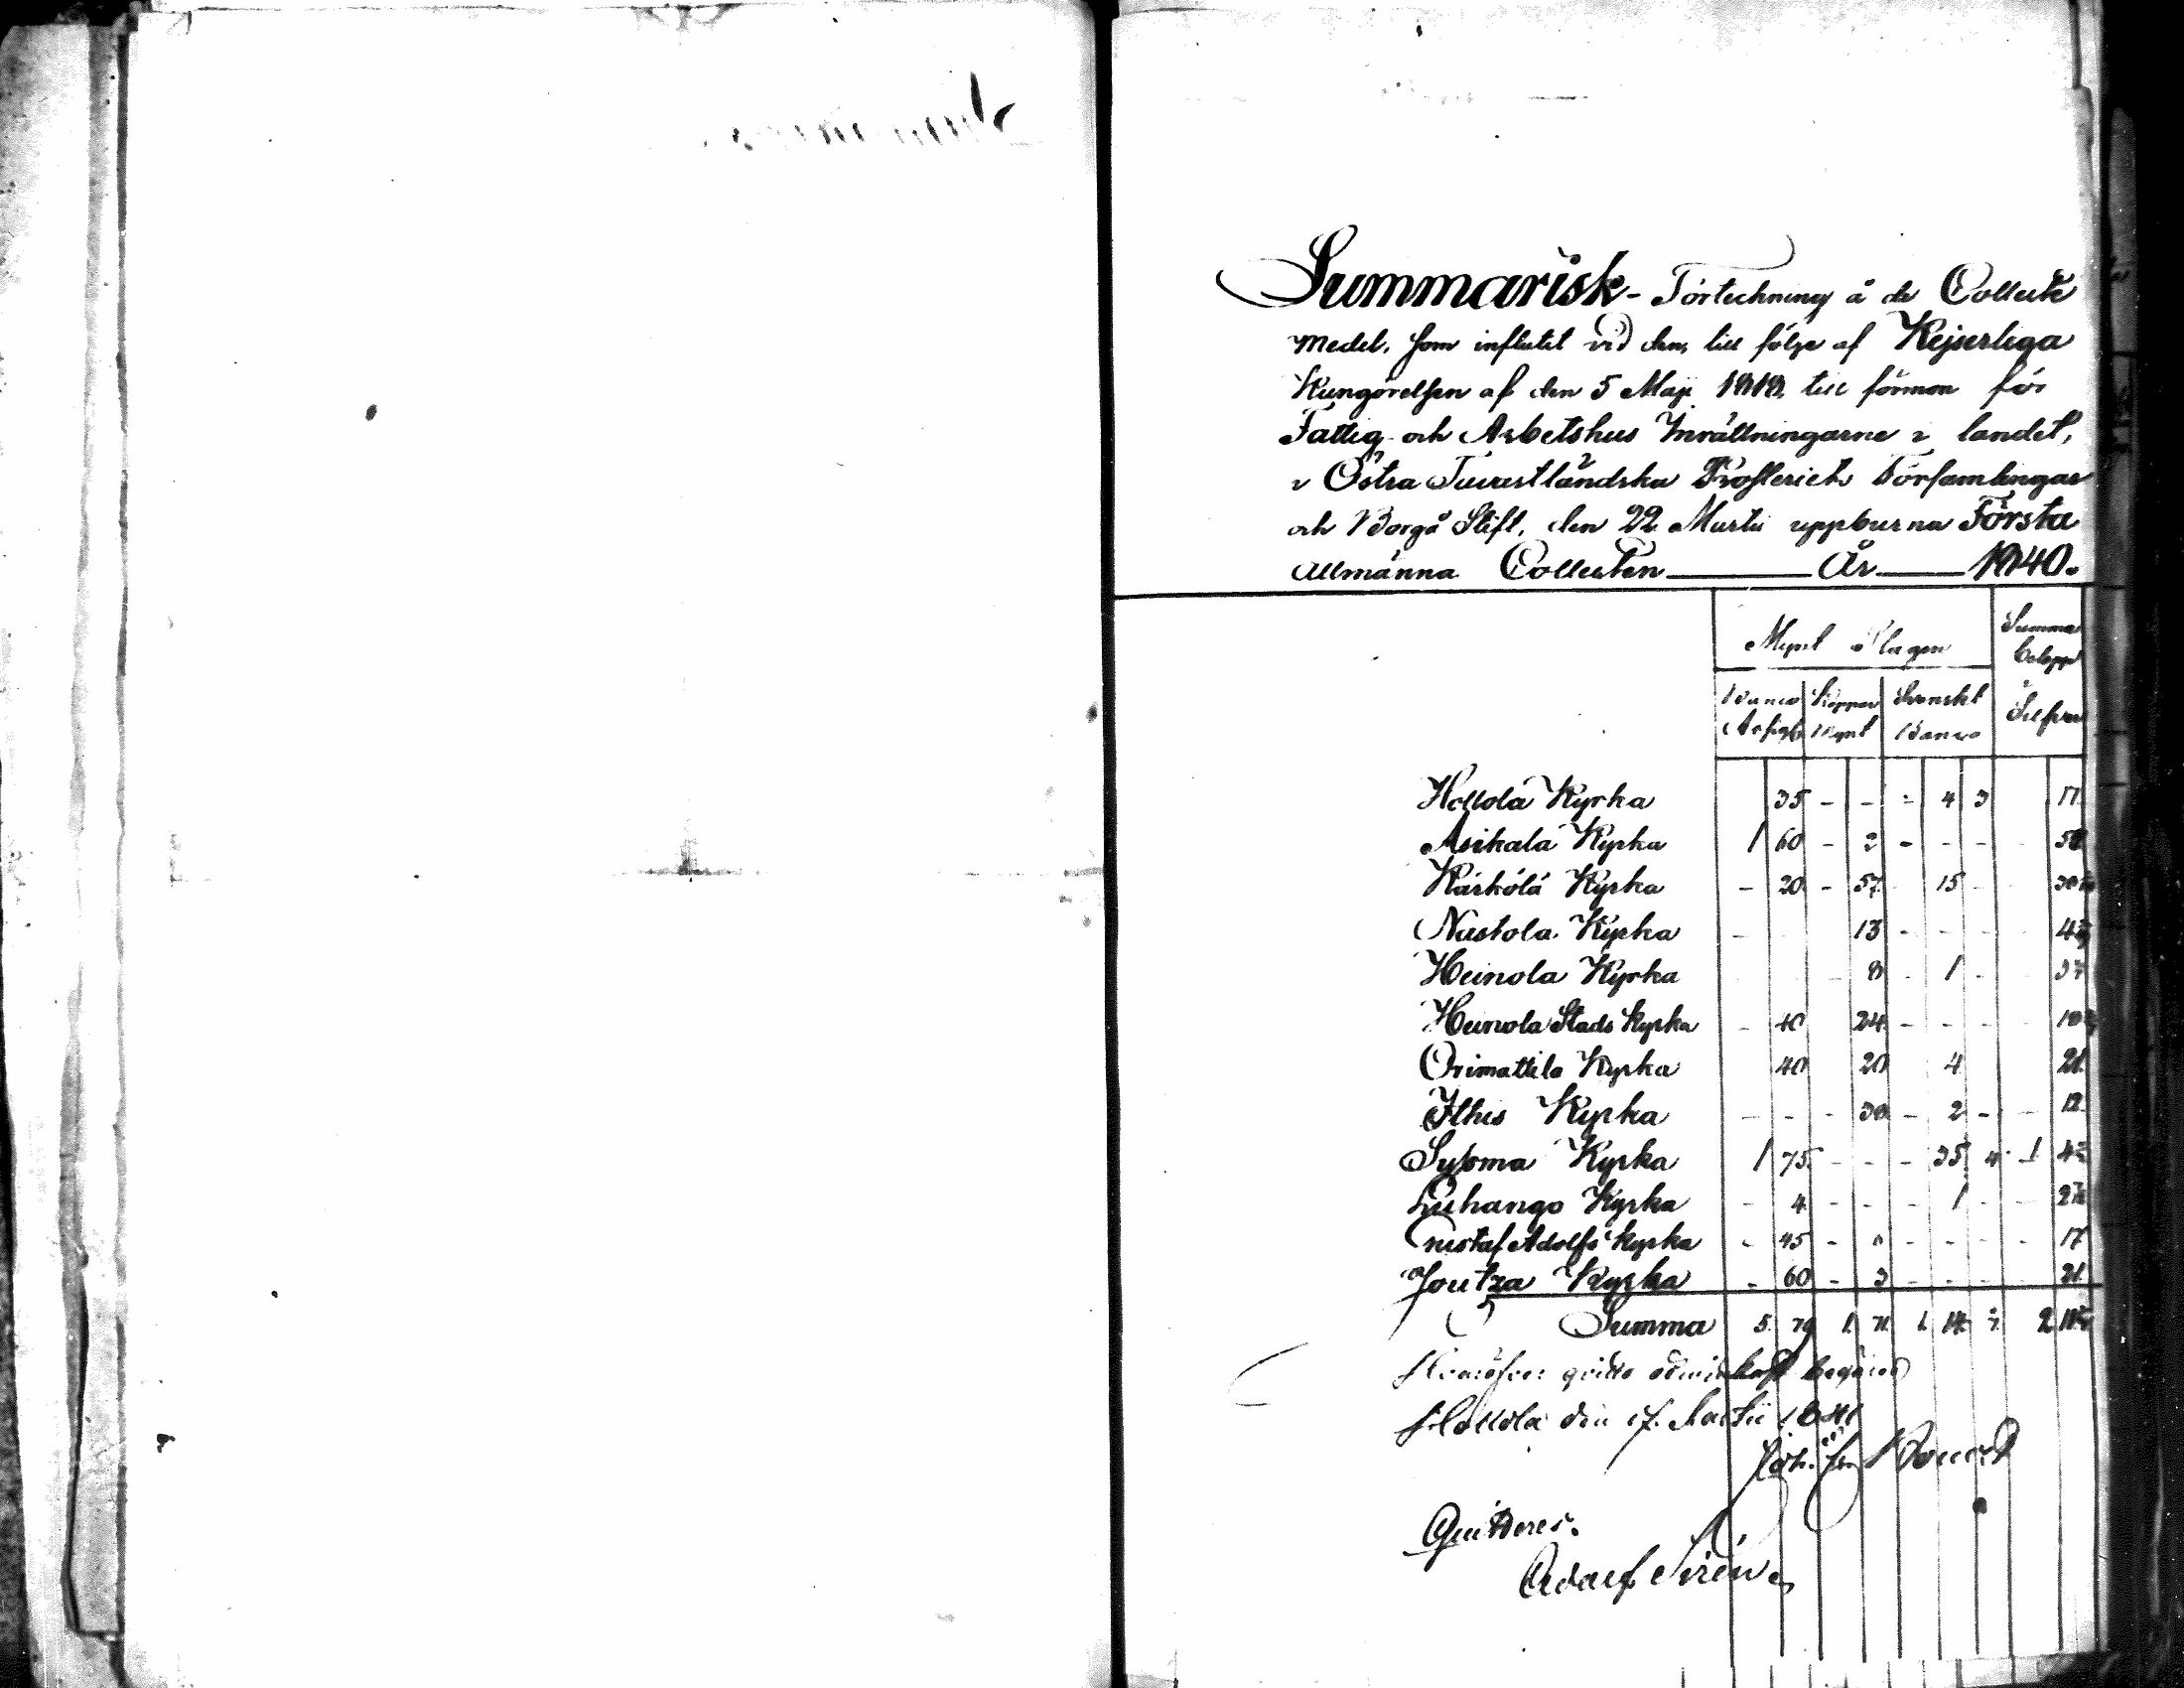 Summarisk - Förteckning å de Collect
medel, som influtit vid den, till följe af Kejserliga
Kungörelsen af den 5 Maji 1818, till förmon för
Fattig- och Arbetshus Inrättningarne i landet,
i Östra Tavastländska Prosteriets Församlingar
och Borgå Stift, den 22 Martii uppburna Första
Allmänna Collecten År 1840.
Mynt Slagen Summa belopp
Banco Assign Koppar Mynt Svenskt Banco Silfver
Hollola Kyrka 35 - - - 4 3 17
Asikala Kyrka 1 60 - 2 - - - 58
Kärkölä Kyrka - 20 - 57 15 -
Nastola Kyrka - 13 - - -
Heinola Kyrka - 8 - 1 -
Heinola Stads Kyrka - 40 24 - - -
Orimattila Kyrka 40 20 4 21
Itthis Kyrka - - - 30 - 2 - - 12
Sysma Kyrka 1 75 - - - 35 4 1
Luhango Kyrka - 4 - - - 1 - -
Gustaf Adolfs kyrka - 45 - - - - - 17
Joutza Kyrka - 60 - 3 - - - 21
Summa 5 79 1 71 1 14
begäres
Hollola den 17 Martii 1841
Quitteres.
Adolf Sirén